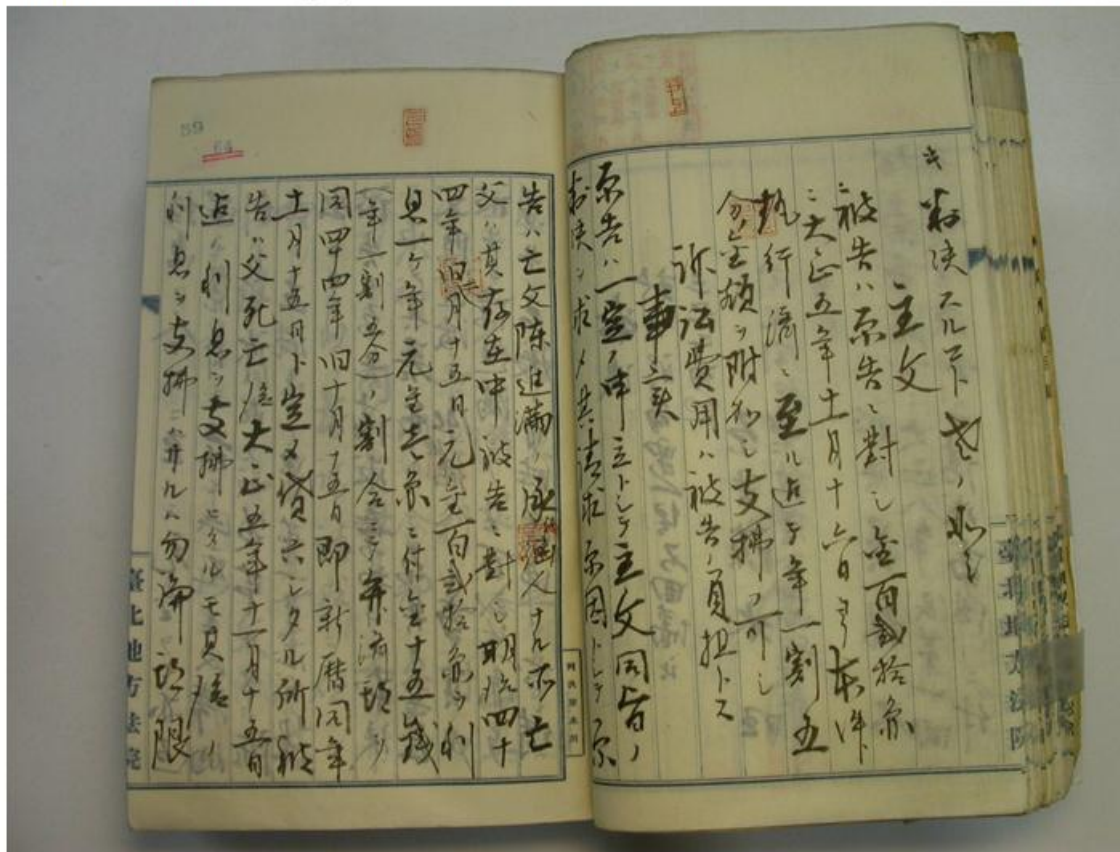 キ判決スルコト左ノ如シ
主文
被告ハ原告ニ對シ金百貳拾円
ニ大正五年十一月十六日ヨリ本件
執行濟ニ至ル迄年一割五
分ノ金額ヲ附加シ支拂フ可シ
訴訟費用ハ被告ノ負担トス
事実
原告ハ一定ノ申立トシテ主文同旨ノ
判決ヲ求メ其請求原因トシテ原
59
64
告ハ亡父陳進滿ノ承継人ナル亦亡
父ハ其存在中被告ニ對シ明治四十
四年旧四月十五日元金百貳拾円ヲ利
息一ケ年元金壱円ニ付金十五銭
(年一割五分)ノ割合ニテ弁済期
同四四年旧十月十五日即新暦同年
十二月十五日ト定メ貸與シタル所被
告ハ父死亡後大正五年十一月十五日
迄ノ利息ヲ支拂ヒタルモ其後ノ
利息ヲ支拂ハサルハ勿論期限
臺北地方法院
臺北地方法院